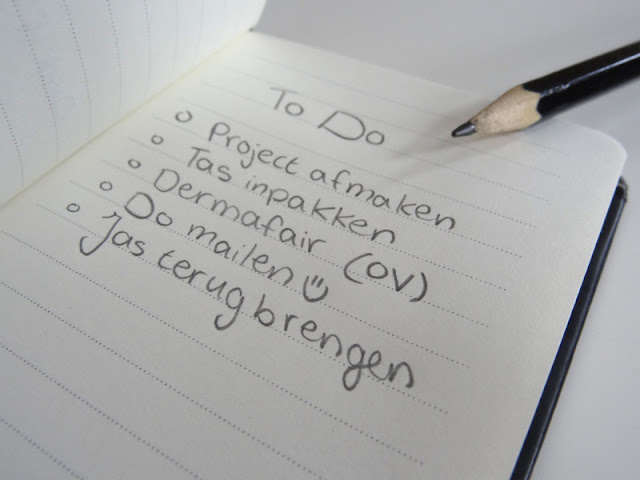 To Do
o Project afmaken
o Tas inpakken
o Dermafair (OV)
o Do mailen ☺
o Jas terug brengen